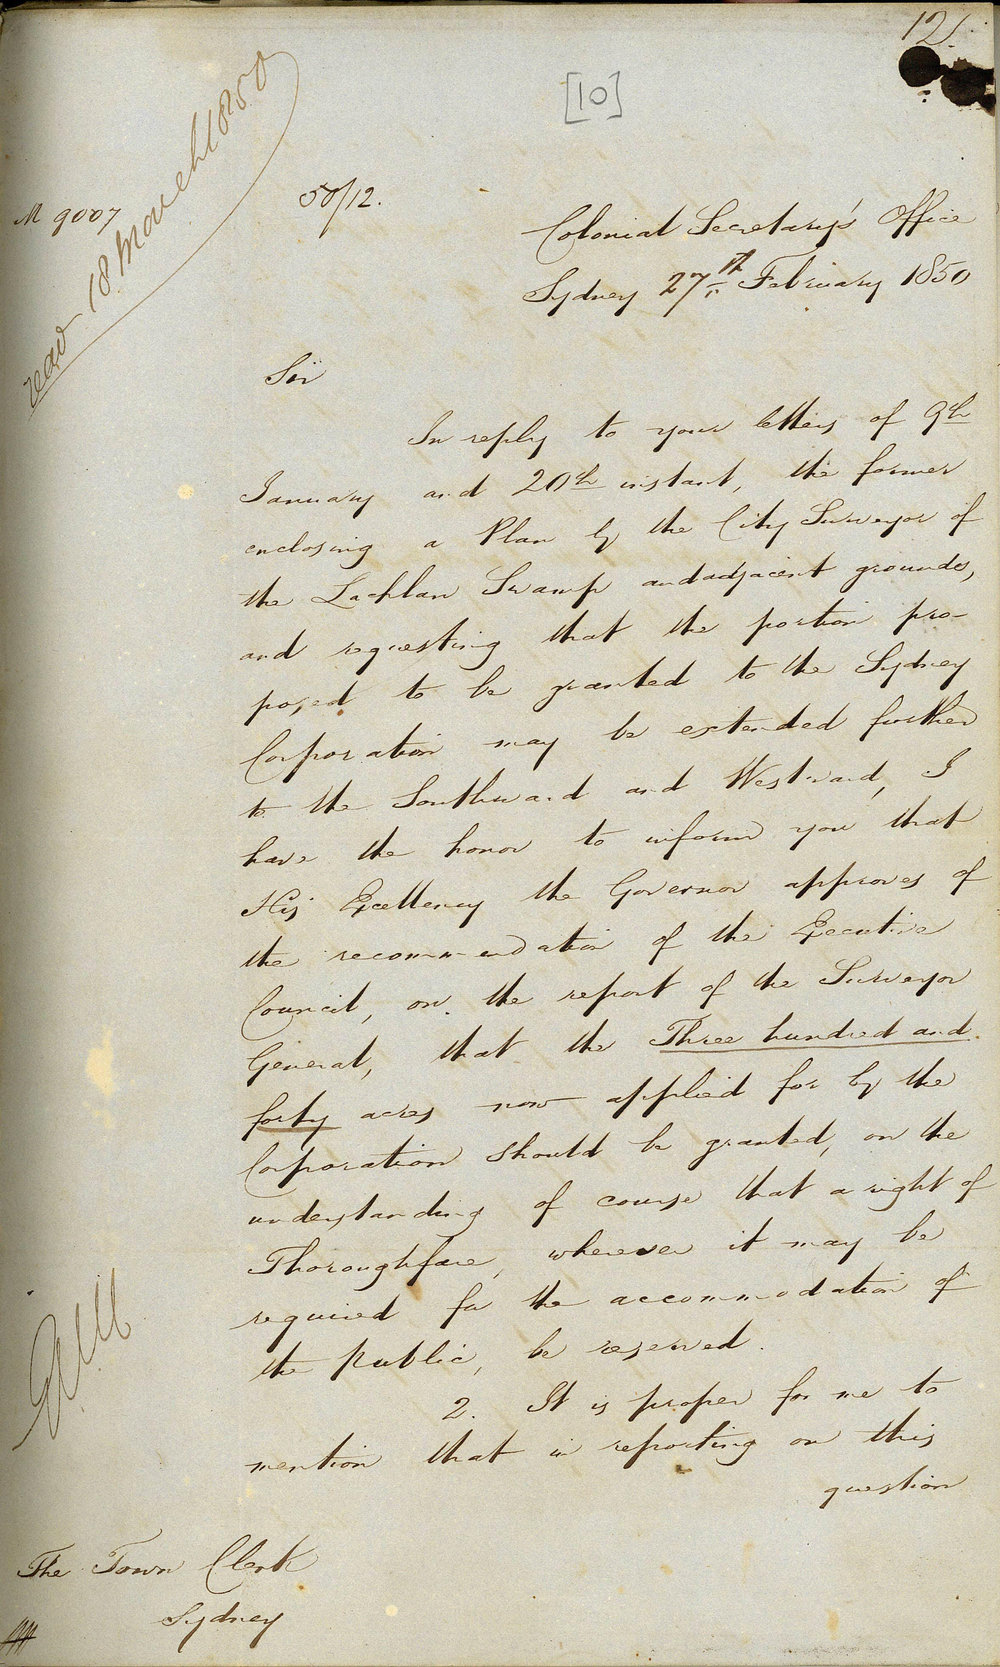 121
[10]
read 18 March 1850
M 9007
50/12.
Colonial Secretary's Office
Sydney 27th February 1850
Sir
In reply to your letters of 9th
January and 20th instant, the former
enclosing a Plan by the City Surveyor of
the Lachlan Swamp and adjacent grounds,
and requesting that the portion pro-
posed to be granted to the Sydney
Corporation may be extended further
to the Southward and Westward, I
have the honor to inform you that
His Excellency the Governor approves of
the recommendation of the Executive
Council, on the report of the Surveyor
General, that the Three hundred and
forty acres now applied for by the
Corporation should be granted, on the
understanding of course that a right of
Thoroughfare, wherever it may be
required for the accommodation of
the public, be reserved.
2. It is proper for me to
mention that in reporting on this
question
The Town Clerk
Sydney